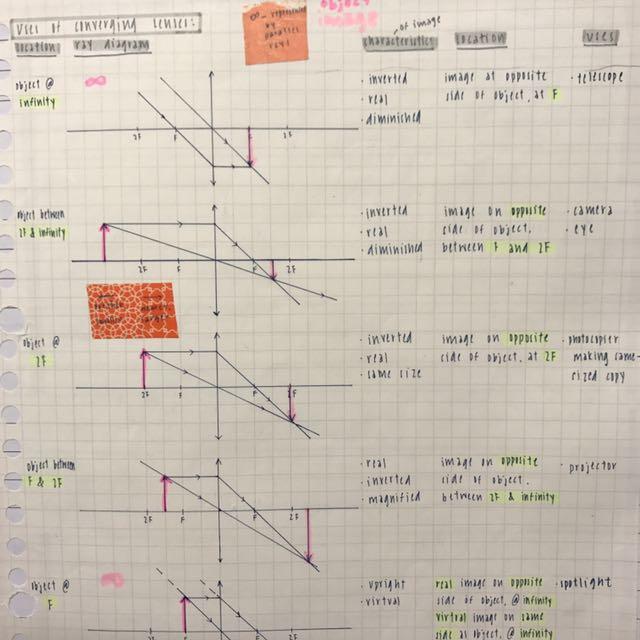 object
image
∞ - represented
by
parallel
rays
uses of converging lenses:
location
ray diagram
characteristics of image
location
uses
object @
infinity
∞
· inverted
· real
· diminished
image at opposite
side of object, at F
· telescope
2F
F
F
2F
object between
2F & infinity
· inverted
· real
· diminished
image on opposite
side of object,
between F and 2F
· camera
· eye
2F
F
F
2F
further
smaller
nearer,
larger
object @
2F
· inverted
· real
· same size
image on opposite
side of object, at 2F
· photocopier
making same-
sized copy
2F
F
F
2F
object between
F & 2F
· real
· inverted
· magnified
image on opposite
side of object,
between 2F & infinity
· projector
2F
F
F
object @
F
· upright
· virtual
real image on opposite
side of object, @ infinity
virtual image on same
side as object, @ infinity
· spotlight
2F
F
F
2F